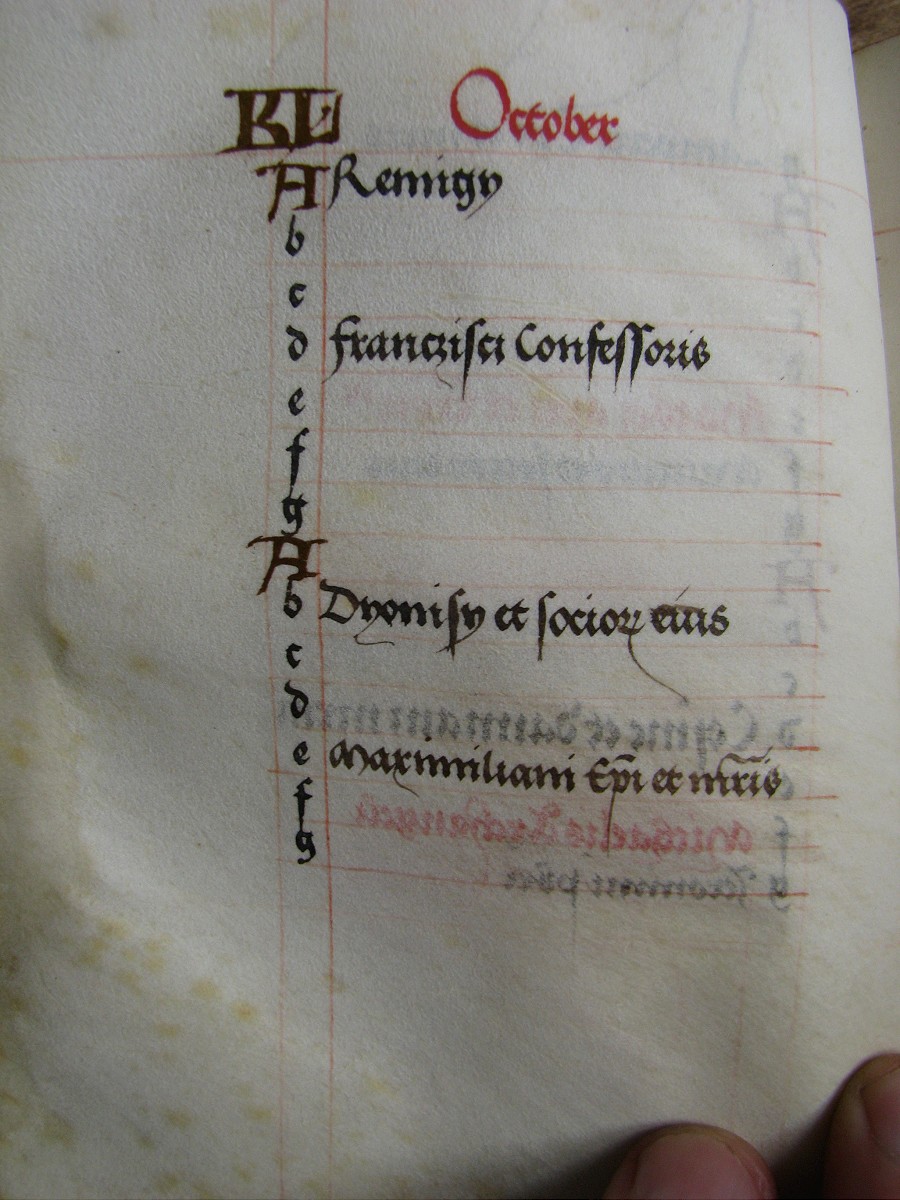 KL October
A Remigy
b
c
d Franczisci Confessoris
e
f
g
A
b Dyonisy et socioꝝ eius
c
d
e Maximiliani Ep̄i et mr̄is
f
g